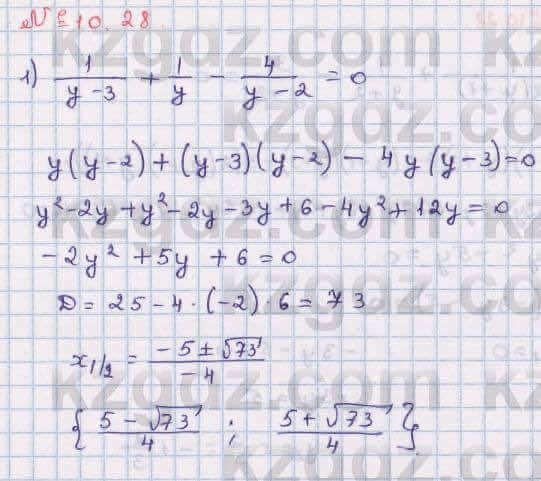 № 10.28
1) 1/(y-3) + 1/y - 4/(y-2) = 0
y(y-2)+(y-3)(y-2)-4y(y-3)=0
y²-2y+y²-2y-3y+6-4y²+12y=0
-2y²+5y+6=0
D=25-4·(-2)·6=73
x₁/₂ = (-5±√73)/(-4)
{ (5-√73)/4 ; (5+√73)/4 }
kzgdz.com